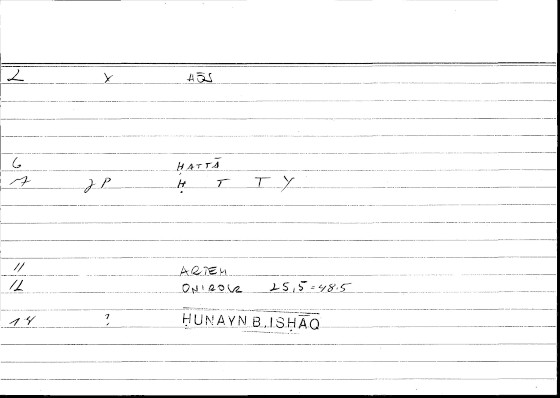 2
6 ḤATTĀ
7 2P Ḥ T T Y
11 ARTEM
12 ONIROCR 25,5=48.5
14 ? ḤUNAYN B. ISḤĀQ